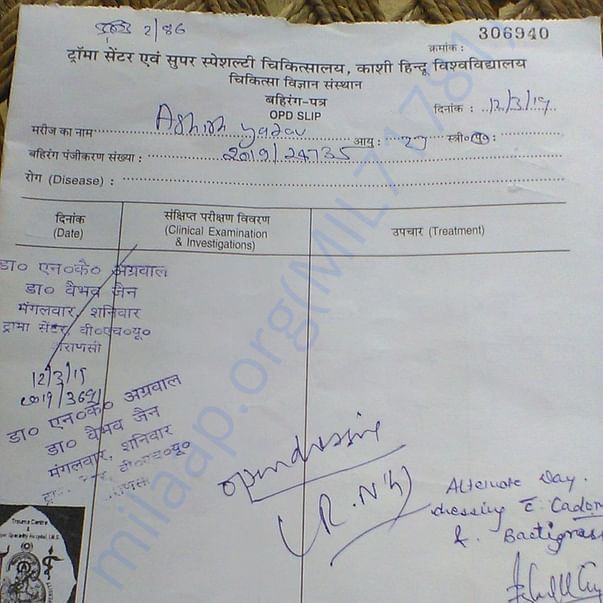 2/86
306940
क्रमांक :
ट्रॉमा सेंटर एवं सुपर स्पेशल्टी चिकित्सालय, काशी हिन्दू विश्वविद्यालय
चिकित्सा विज्ञान संस्थान
बहिरंग-पत्र
OPD SLIP
दिनांक : 12/3/19
मरीज का नाम Ashish Yadav आयु : स्त्री०/पु० :
बहिरंग पंजीकरण संख्या : 2019/24735
रोग (Disease) :
दिनांक
(Date)
संक्षिप्त परीक्षण विवरण
(Clinical Examination
& Investigations)
उपचार (Treatment)
डा० एन०के० अग्रवाल
डा० वैभव जैन
मंगलवार, शनिवार
ट्रामा सेंटर, बी०एच०यू०
12/3/19
डा० एन०के० अग्रवाल
डा० वैभव जैन
मंगलवार, शनिवार
बी०एच०यू०
Alternate Day.
dressing
& Bactigras
Trauma Centre
&
Super Speciality Hospital, I.M.S.
milaap.org(MIL71781)